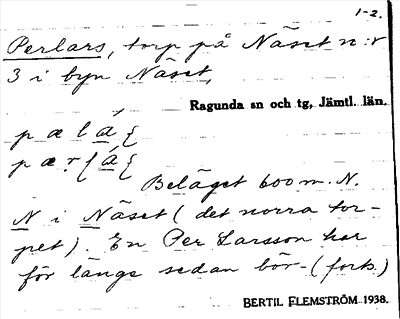 1-2.
Perlars, torp på Näset n:r
3 i byn Näset,
Ragunda sn och tg, Jämtl. län.
p æ l á
p æ r l á
Beläget 600 m. N.
N i Näset (det norra tor-
pet). En Per Larsson har
för länge sedan bör- (forts.)
BERTIL FLEMSTRÖM 1938.